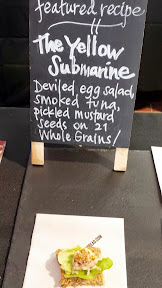 featured recipe
The Yellow
Submarine
Deviled egg salad,
smoked tuna,
pickled mustard
seeds on 21
Whole Grains/